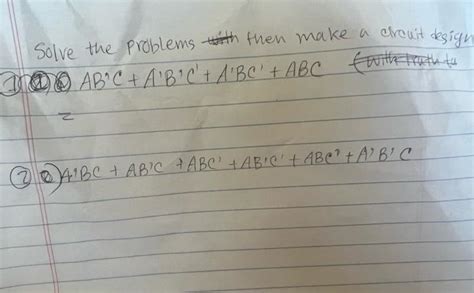 Solve the problems with then make a circuit design
① AB'C + A'B'C' + A'BC' + ABC (with truth ta
=
② A'BC + AB'C + ABC' + AB'C' + ABC' + A'B'C